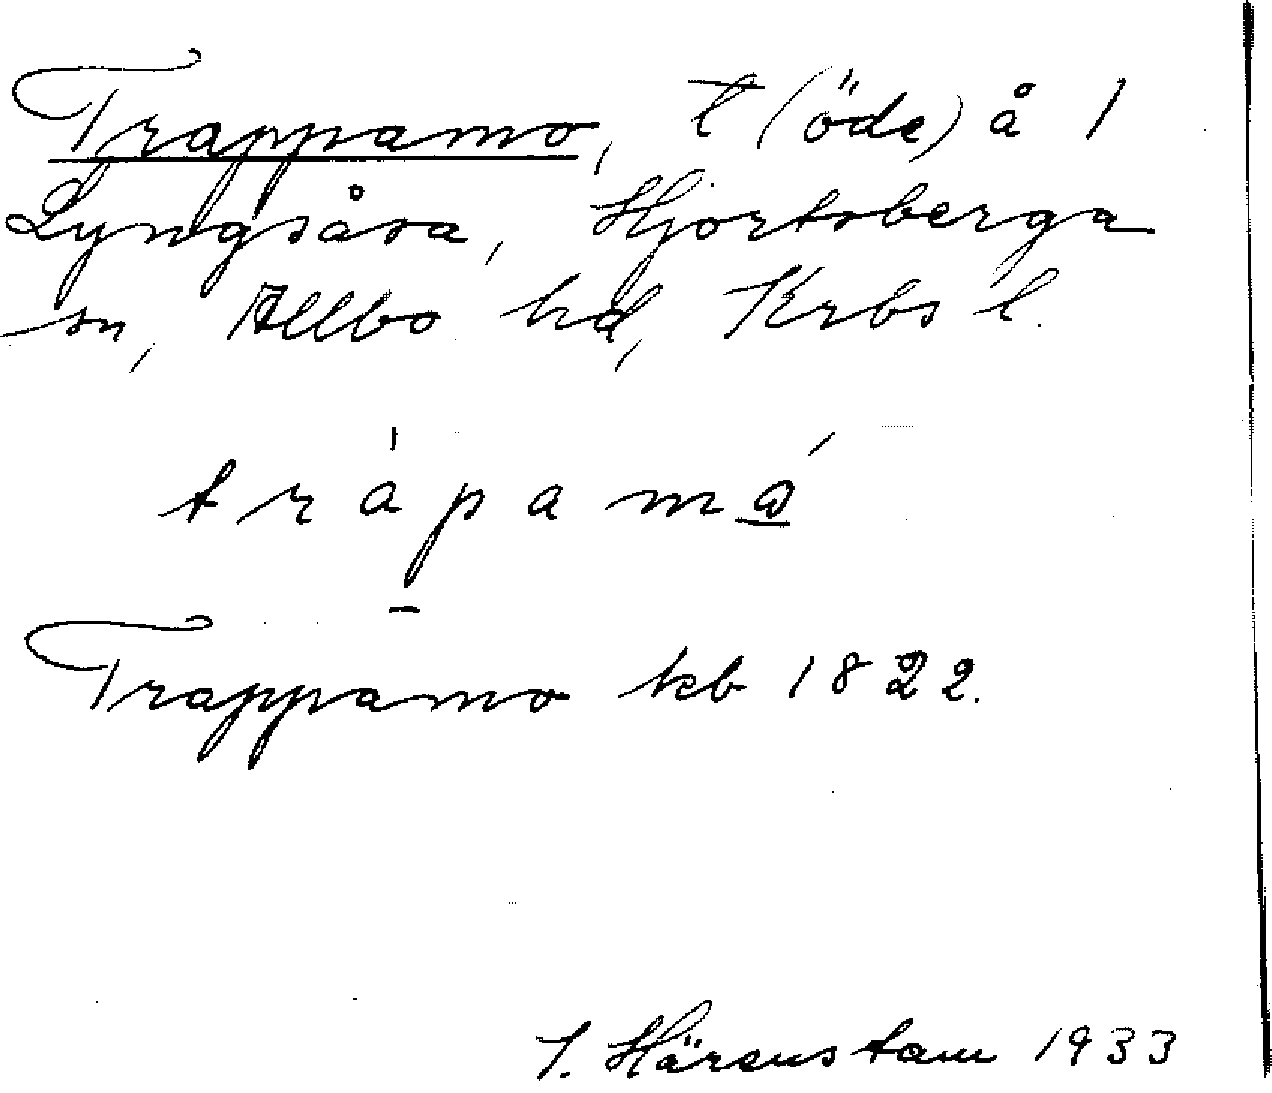 Trappamo, t (öde) å 1
Lyngsåsa, Hjortsberga
sn, Allbo hd, Krbs l.
trápamó
Trappamo kb 1822.
I. Härenstam 1933